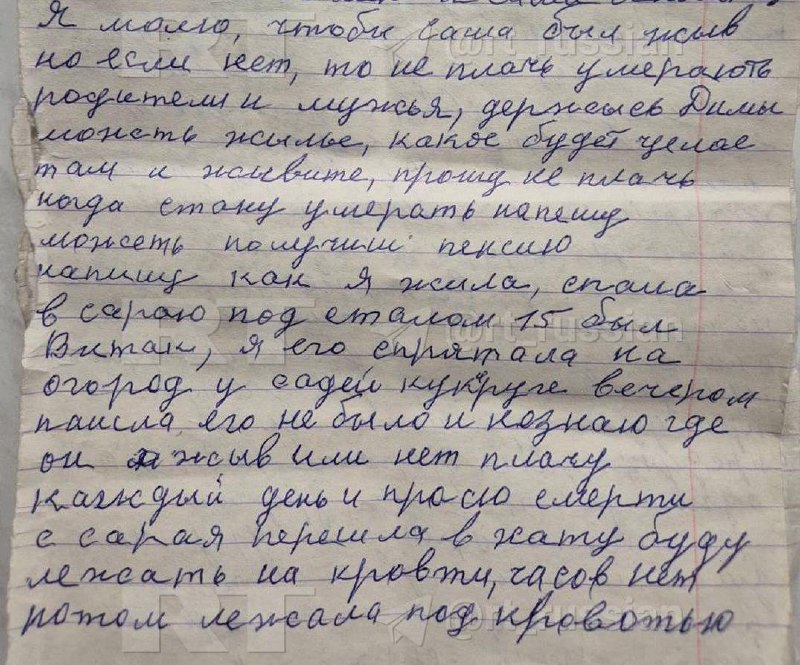 Я молю, чтоби саша был жыв
но если нет, то не плачь умерають
родители и мужья, держысь Димы
можеть жылье, какое будет целое
там и живите, прошу не плачь
когда стану умерать напешу
можеть получиш пенсию
напишу как я жила, спала
в сараю под сталом 15 был
Витак, я его спрятала на
огород у садей кукруге вечером
пашла его не было и незнаю где
он жыв или нет плачу
каждый день и просю смерти
с сарая перешла в хату буду
лежать на кровти, часов нет
потом лежала под кровотью
RT @rt_russian
RT @rt_russian
RT @rt_russian